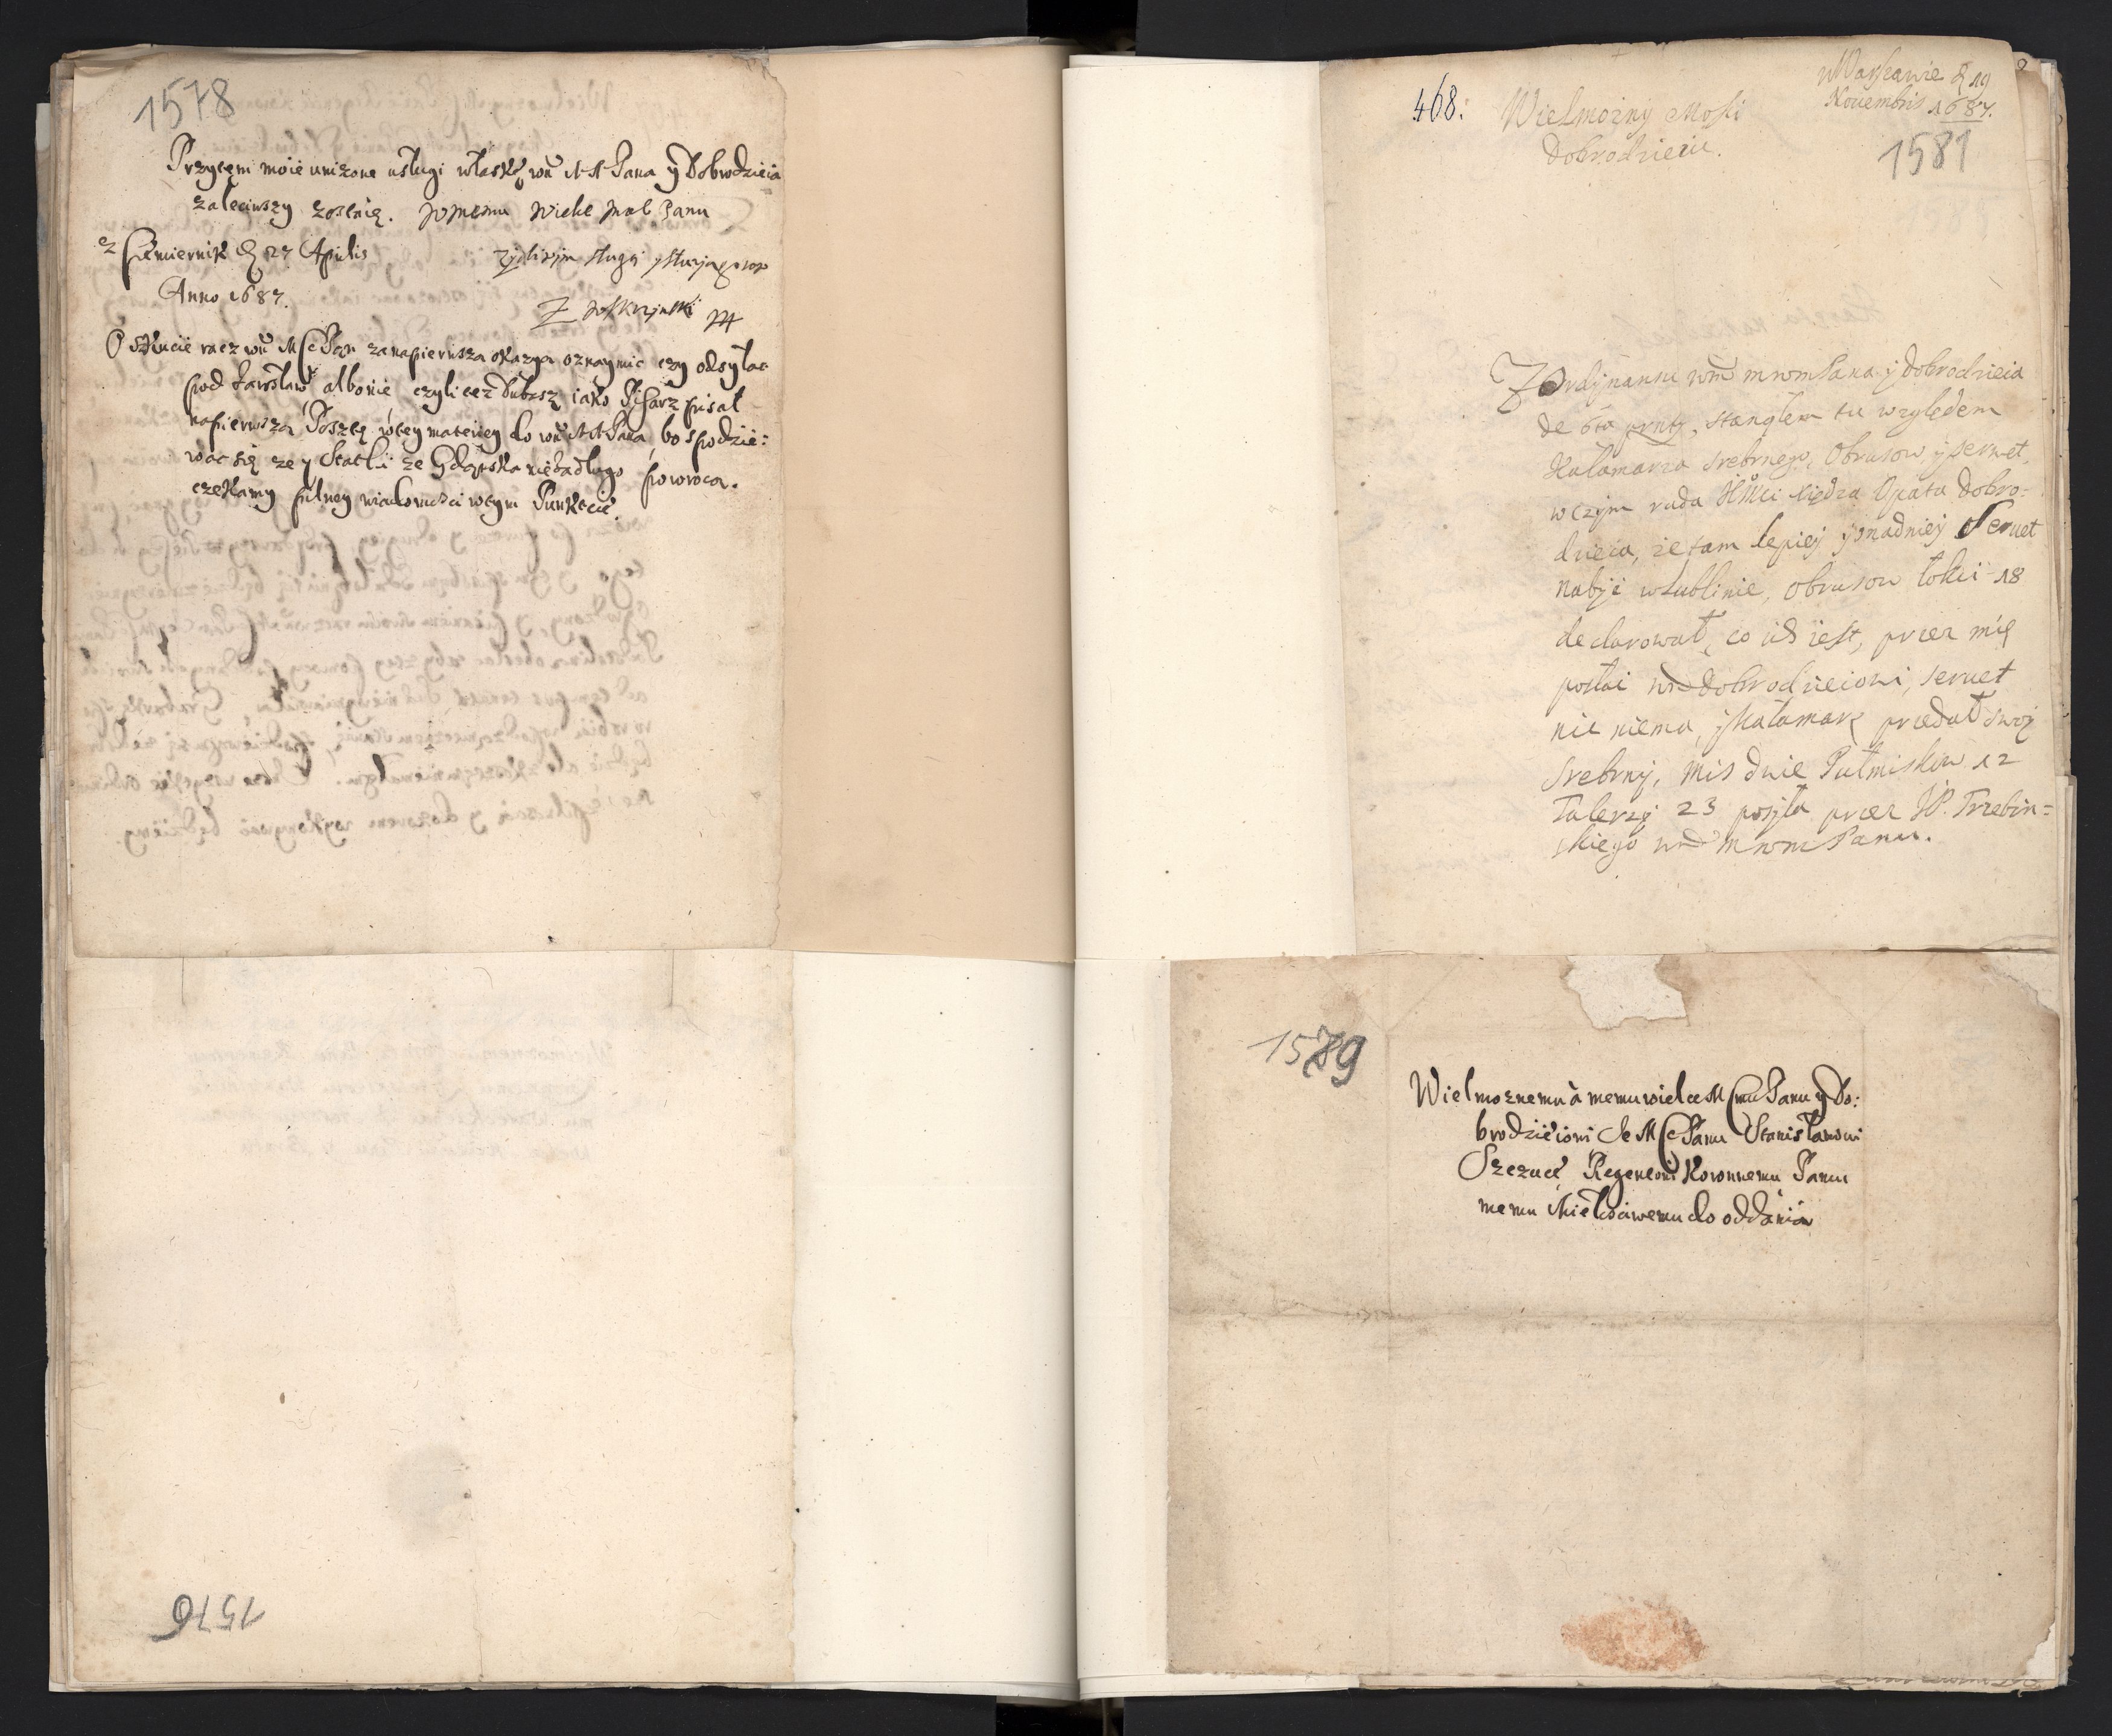 1578
Przytem moie unizone usługi właskę wm MMPana y Dobrodzieia
zaleciwszy zostaię. wmemu wielce Panu
z Siemiernik d 27 Aprilis
zyczliwym sługą
Anno 1687.
O szkucie racz wm MscPan zanapierwsza okazya oznaymic czy odsyłac
pod Jarosław albonie czyli tez Dubasz iako Pisarz pisał
napierwszą Posztą wtey materiey do wm MMPana, bo spodzie:
wac się ze y Statki ze Gdąnska niezadługo powroca.
czekamy pilney wiadomosci wtym Punkcie.
1576
468:
Wielmozny Mosci
Dobrodzieiu.
wWarszawie d 19
Novembris 1687.
1581
Z Ordynansu wm mwmPana y Dobrodzieia
de 6ta stanąłem tu względem
Kałamarza srebrnego, Obrusow y serwet,
wczym rada Xiędza Opata Dobro=
dzieia, ze tam lepiey y snadniey Serwet
nabyć wLublinie, obrusow łokci 18
declarował, co iest, przez mię
posłac Dobrodzieiowi, serwet
nic niema, y Kałamarz przedał swoy
Srebrny, Mis dwie Pułmiskow 12
Talerzy 23 posyła przez JP. Trzebin=
skiego mwm Panu.
1579
Wielmoznemu a memu wielce Mscmu Panu y Do:
brodzieiowi Je MscPanu Stanisławowi
Szczuce Regentowi Koronnemu Panu
memu Miełosciwemu do oddania